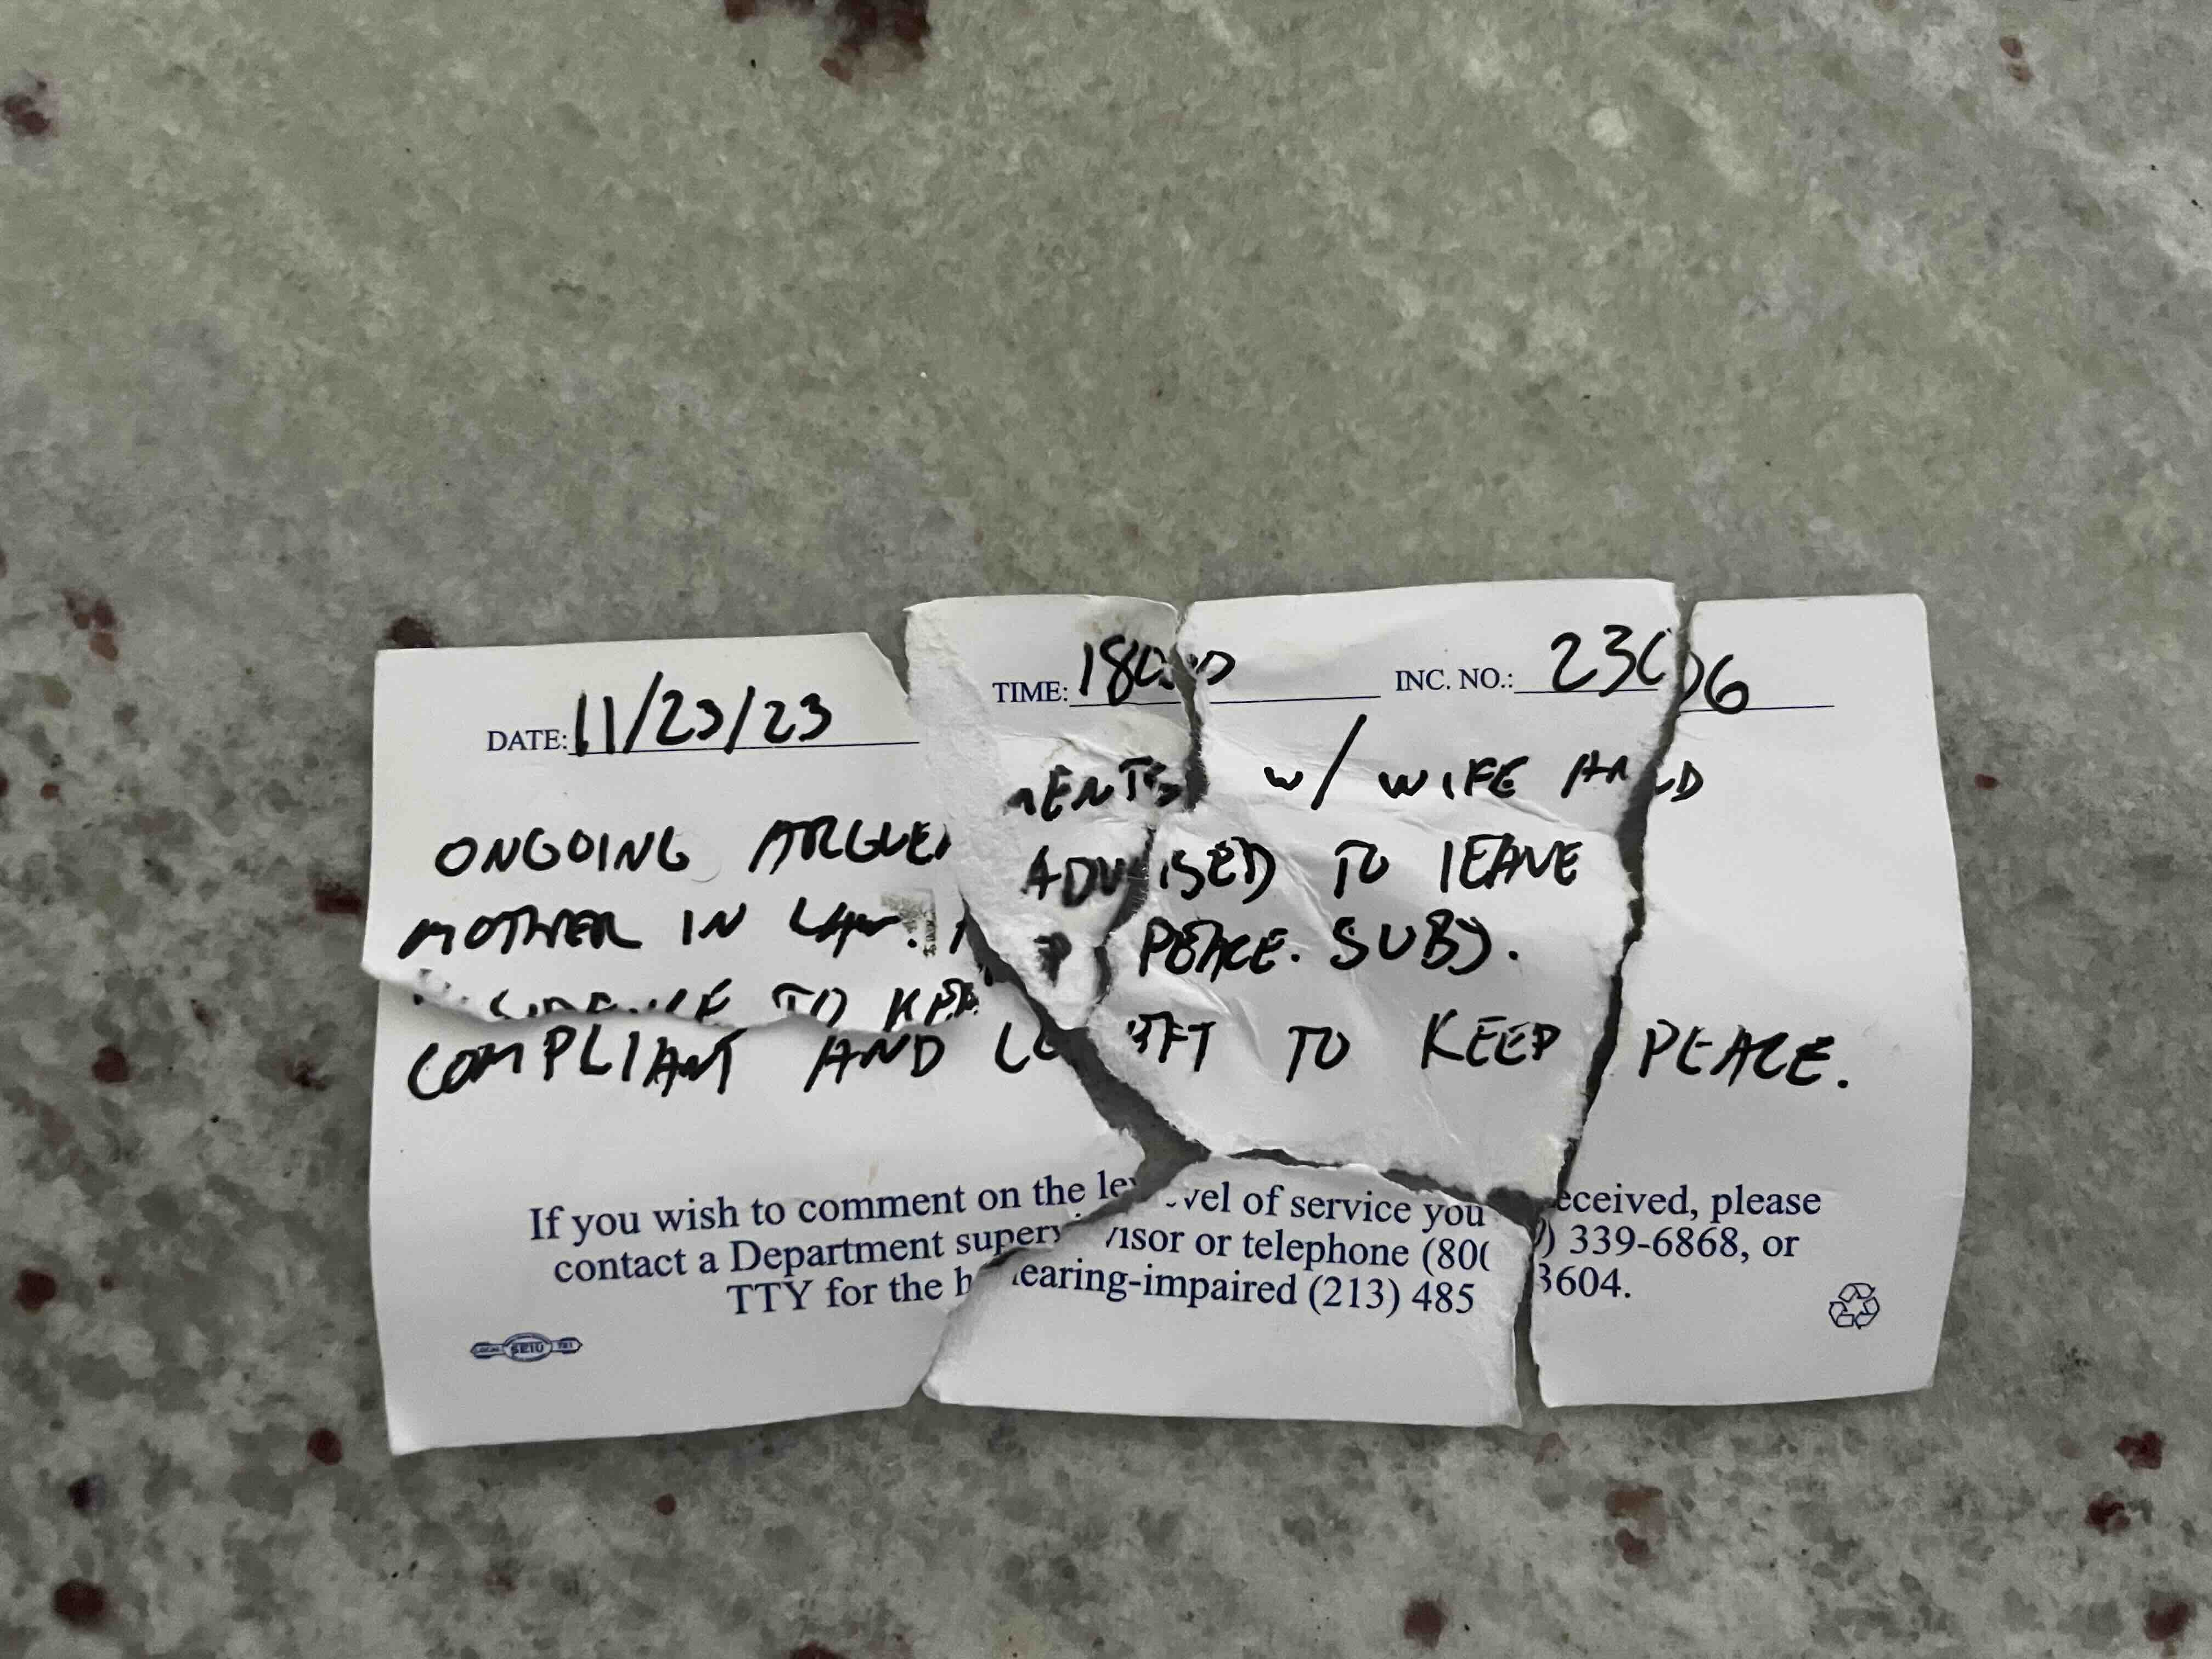 DATE: 11/23/23 TIME: 1800 INC. NO.: 2306
ONGOING ARGUEMENTS w/ WIFE AND
MOTHER IN LAW. ADVISED TO LEAVE
RESIDENCE TO KEEP PEACE. SUBJ.
COMPLIANT AND LEFT TO KEEP PEACE.
If you wish to comment on the level of service you received, please
contact a Department supervisor or telephone (800) 339-6868, or
TTY for the hearing-impaired (213) 485 3604.
SEIU